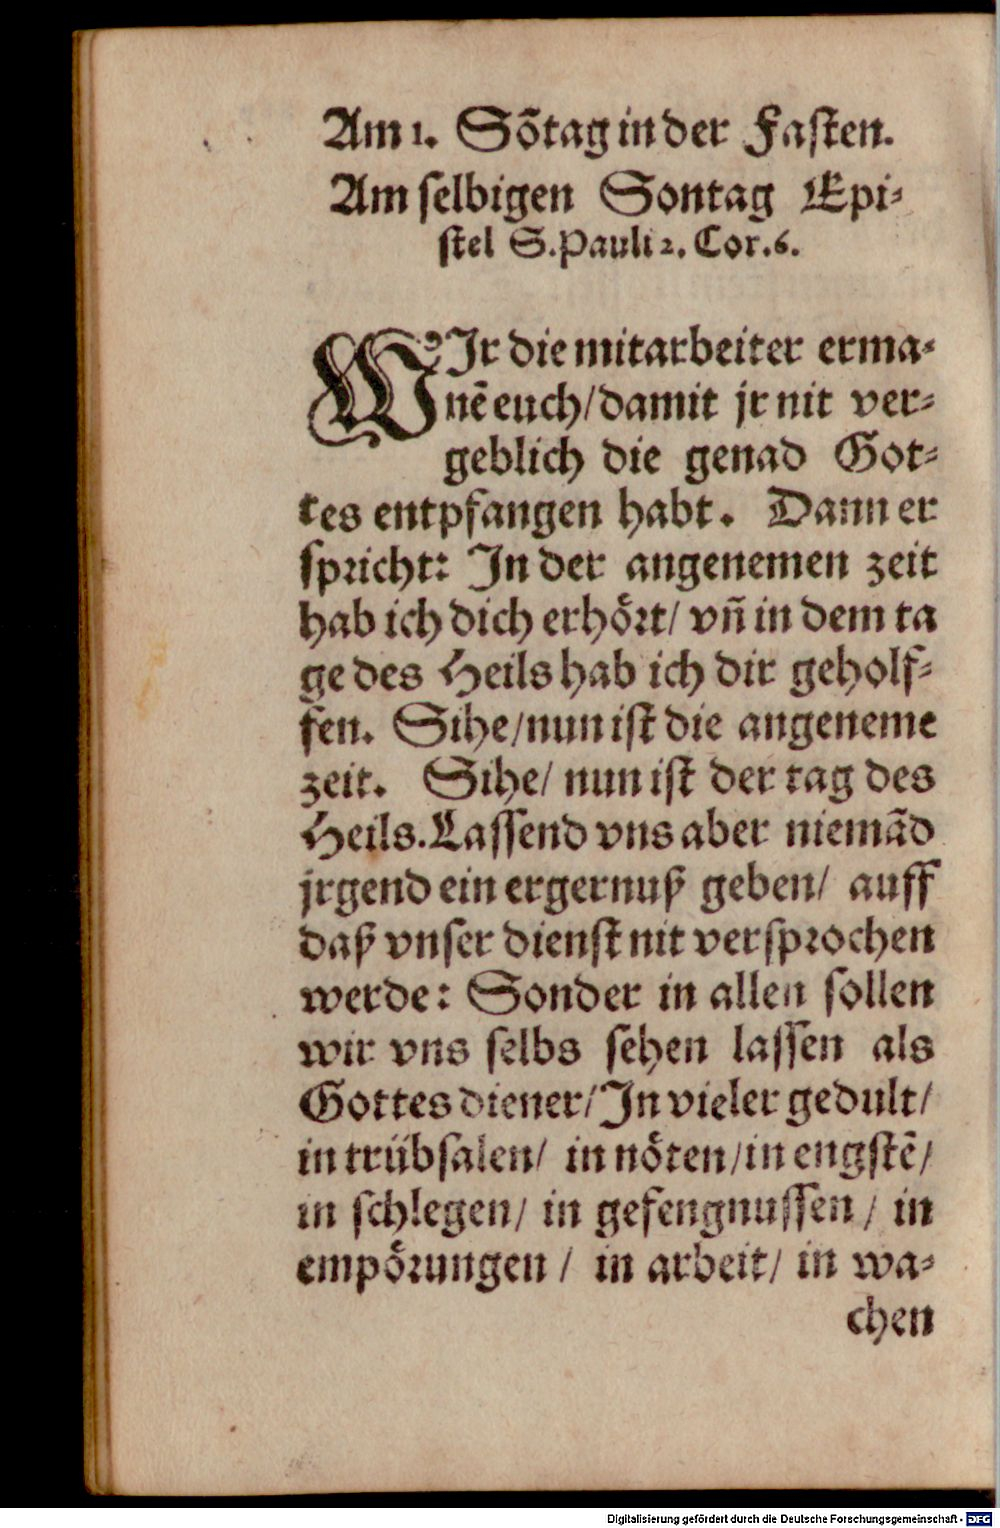 Am 1. Sõtag in der Fasten.
Am selbigen Sontag Epi-
stel S. Pauli 2. Cor. 6.
WJr die mitarbeiter erma-
nẽ euch/ damit jr nit ver-
geblich die genad Got-
tes entpfangen habt. Dann er
spricht: In der angenemen zeit
hab ich dich erhört/ vñ in dem ta
ge des Heils hab ich dir geholf-
fen. Sihe/ nun ist die angeneme
zeit. Sihe/ nun ist der tag des
Heils. Lassend vns aber niemãd
jrgend ein ergernuß geben/ auff
daß vnser dienst nit versprochen
werde: Sonder in allen sollen
wir vns selbs sehen lassen als
Gottes diener/ In vieler gedult/
in trübsalen/ in nöten/ in engstẽ/
in schlegen/ in gefengnussen/ in
empörungen/ in arbeit/ in wa-
chen
Digitalisierung gefördert durch die Deutsche Forschungsgemeinschaft - DFG